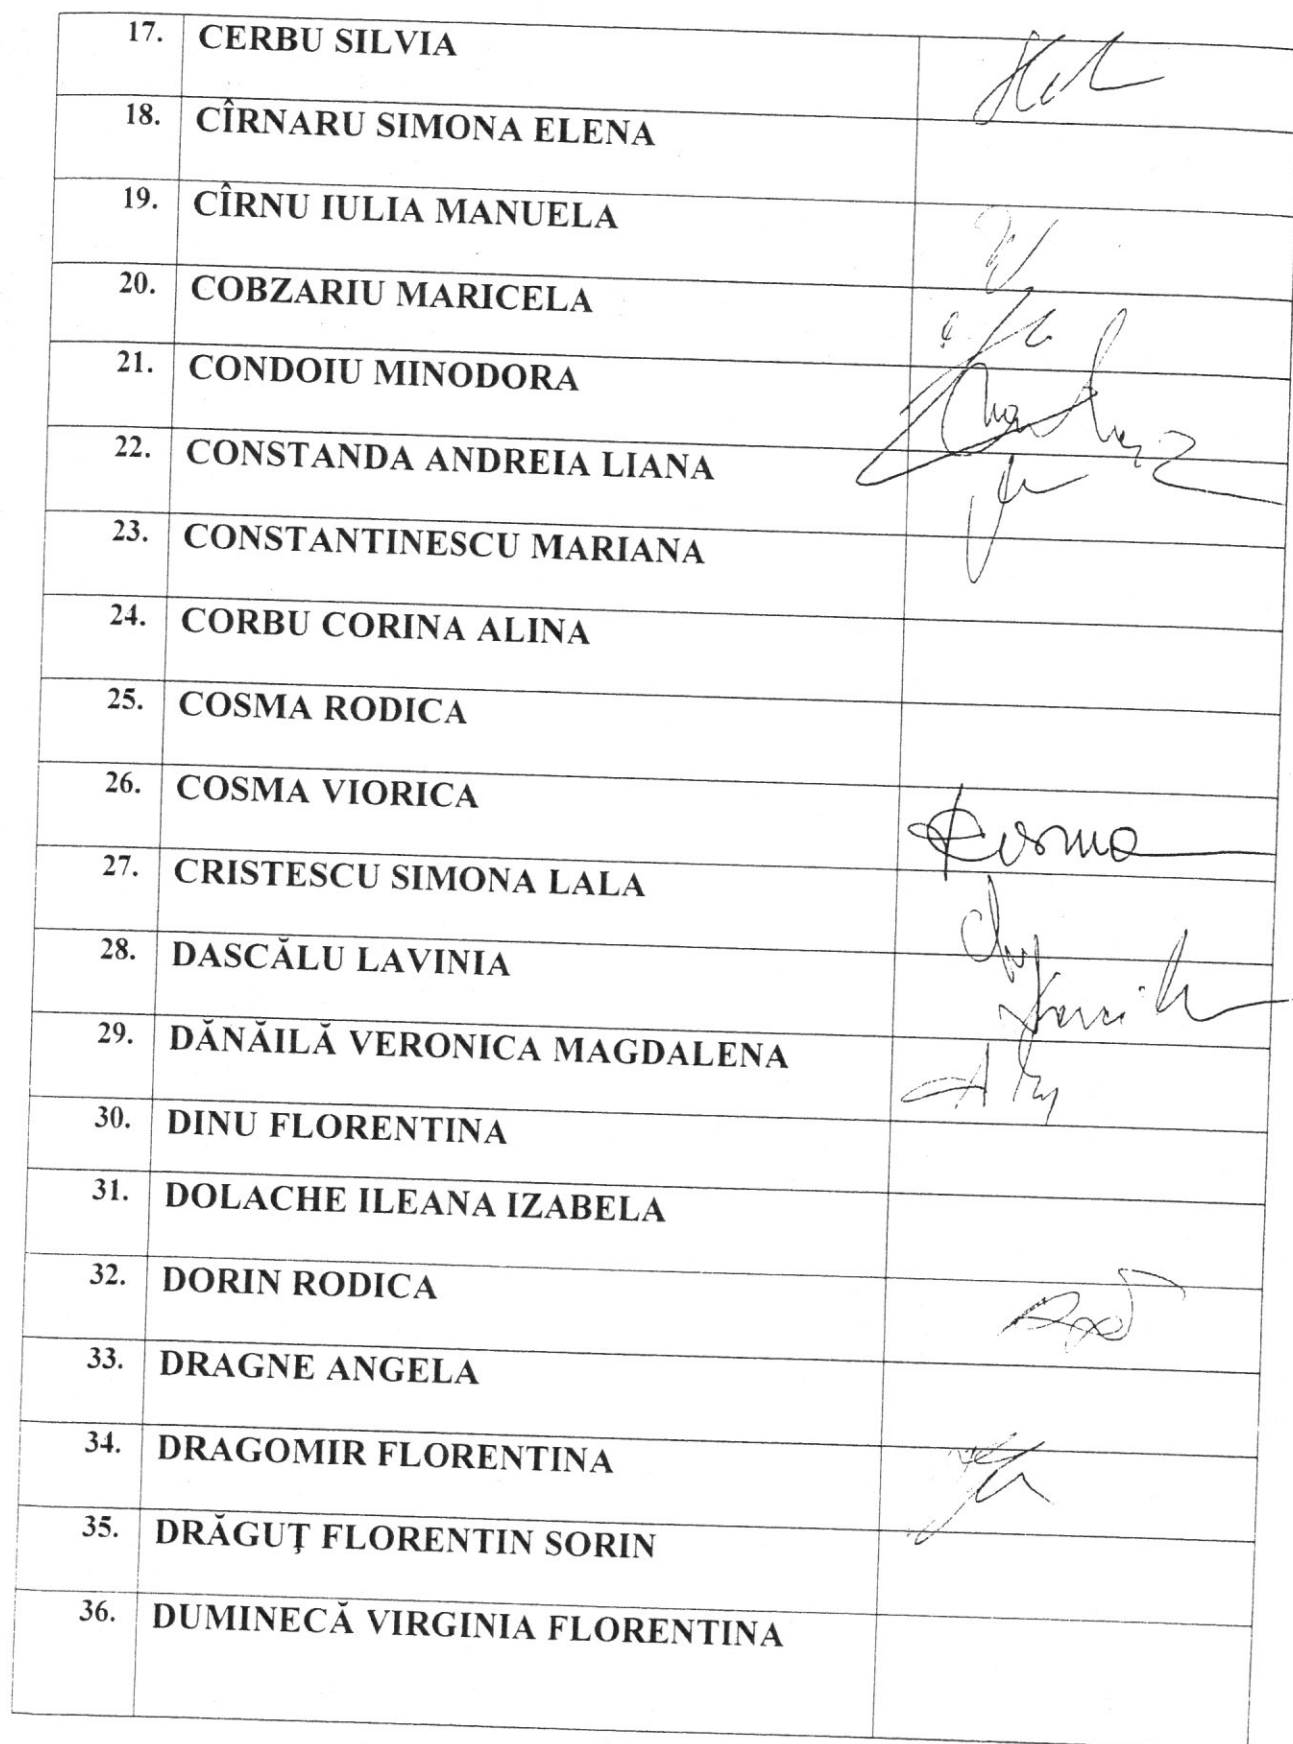 17. CERBU SILVIA
18. CÎRNARU SIMONA ELENA
19. CÎRNU IULIA MANUELA
20. COBZARIU MARICELA
21. CONDOIU MINODORA
22. CONSTANDA ANDREIA LIANA
23. CONSTANTINESCU MARIANA
24. CORBU CORINA ALINA
25. COSMA RODICA
26. COSMA VIORICA Cosma
27. CRISTESCU SIMONA LALA
28. DASCĂLU LAVINIA
29. DĂNĂILĂ VERONICA MAGDALENA
30. DINU FLORENTINA
31. DOLACHE ILEANA IZABELA
32. DORIN RODICA
33. DRAGNE ANGELA
34. DRAGOMIR FLORENTINA
35. DRĂGUŢ FLORENTIN SORIN
36. DUMINECĂ VIRGINIA FLORENTINA